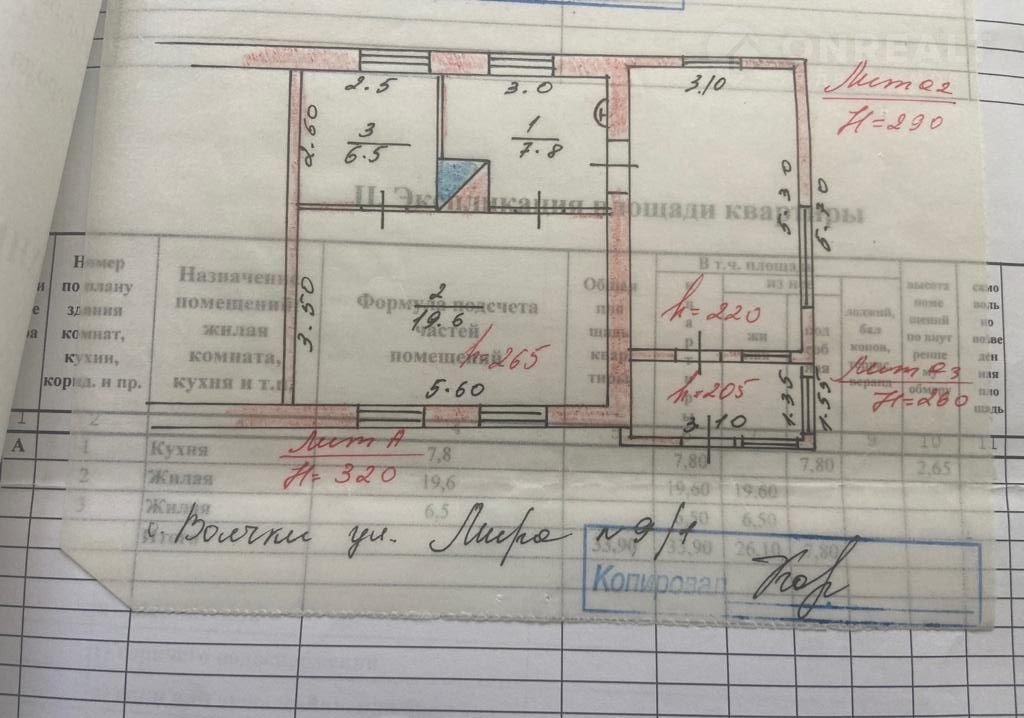 ONREAL
2.5
3.0
3.10
Лит а2
H=290
2.60
3
6.5
1
7.8
5.30
5.70
II. Экспликация площади квартиры
Номер
по плану
здания
комнат,
кухни,
корид. и пр.
Назначение
помещений
жилая
комната,
кухня и т.п.
Формула подсчета
частей
помещений
В т.ч. площадь
из нее
лоджий, бал
конов,
веранд
высота
поме
щений
по внут
ренне
му
обмеру
само
воль
но
возве
ден
ная
пло
щадь
2
19.6
h=265
5.60
3.50
h=220
h=205
3.10
1.35
1.55
Лит а3
H=260
1
2
9
10
11
Лит А
H=320
А
1
Кухня
7,8
7,80
7,80
2,65
2
Жилая
19,6
19,60
19,60
3
Жилая
6,5
6,50
6,50
33,90
33,90
26,10
7,80
с. Волчки ул. Мира №9/1
Копировал